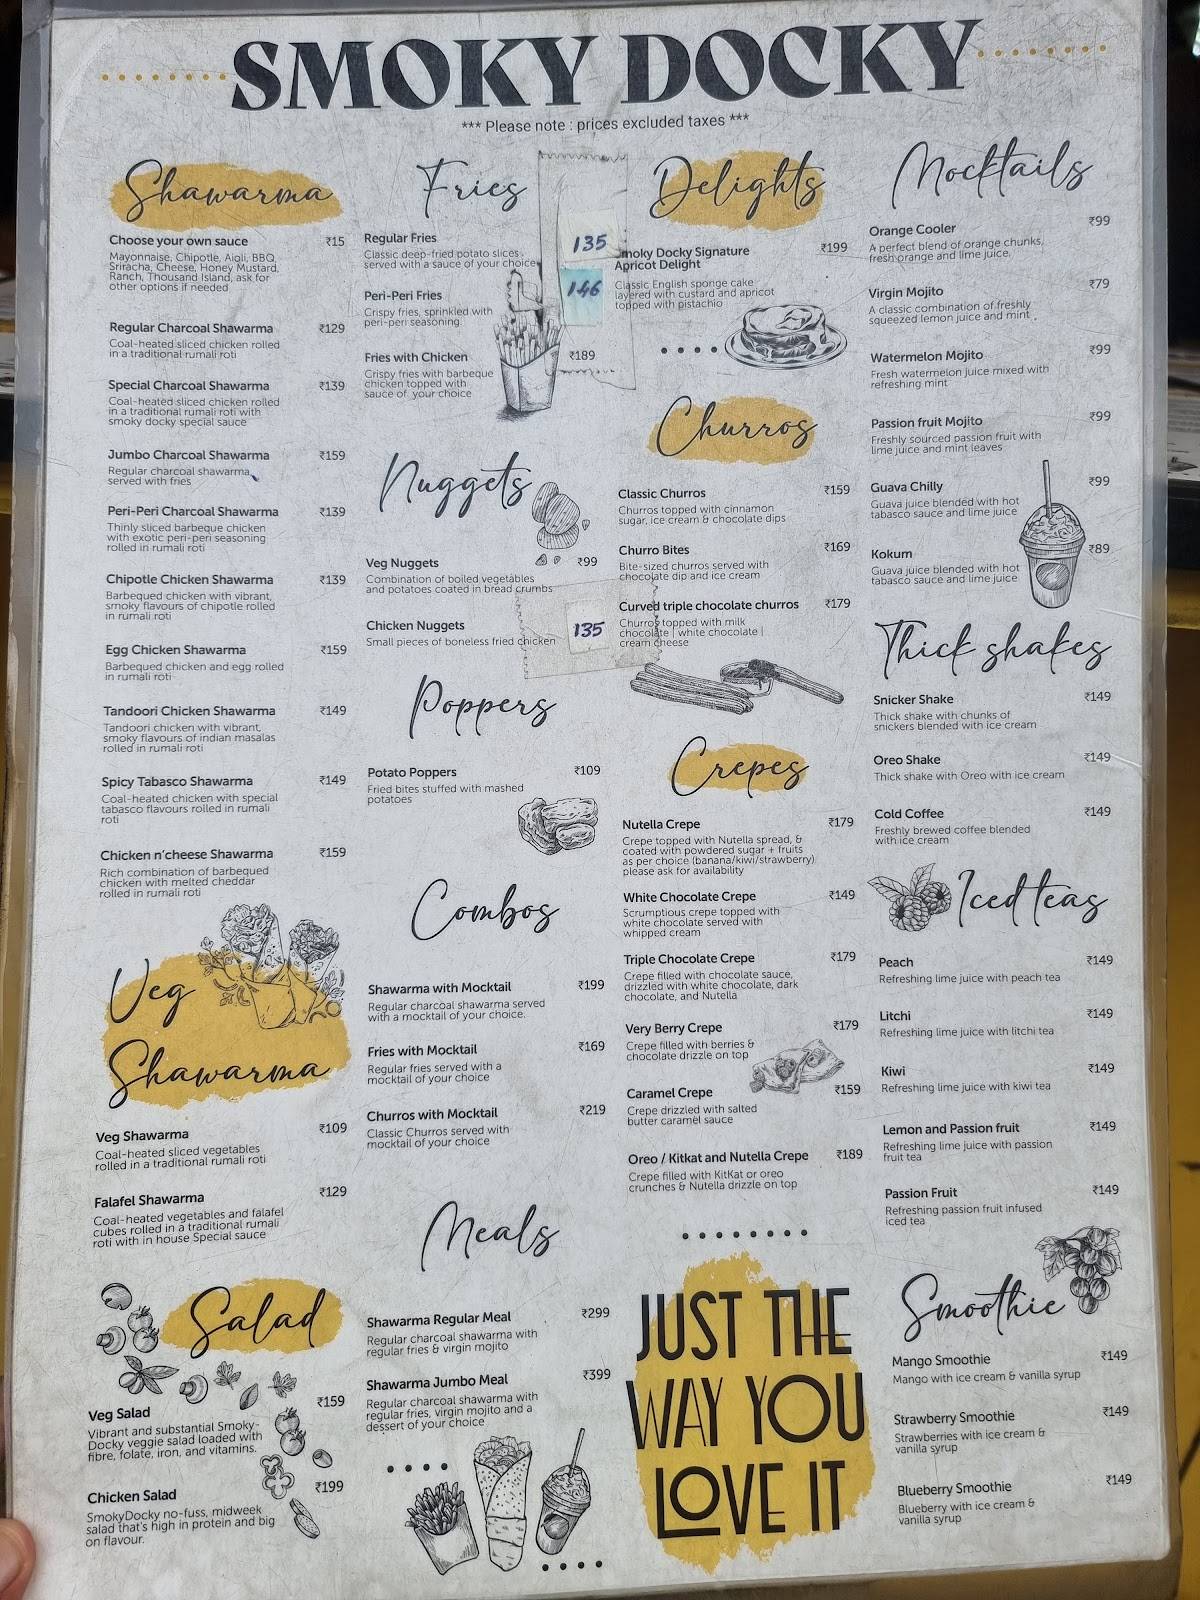 SMOKY DOCKY
*** Please note : prices excluded taxes ***
Shawarma
Choose your own sauce ₹15
Mayonnaise, Chipotle, Aioli, BBQ,
Sriracha, Cheese, Honey Mustard,
Ranch, Thousand Island, ask for
other options if needed
Regular Charcoal Shawarma ₹129
Coal-heated sliced chicken rolled
in a traditional rumali roti
Special Charcoal Shawarma ₹139
Coal-heated sliced chicken rolled
in a traditional rumali roti with
smoky docky special sauce
Jumbo Charcoal Shawarma ₹159
Regular charcoal shawarma
served with fries
Peri-Peri Charcoal Shawarma ₹139
Thinly sliced barbeque chicken
with exotic peri-peri seasoning
rolled in rumali roti
Chipotle Chicken Shawarma ₹139
Barbequed chicken with vibrant,
smoky flavours of chipotle rolled
in rumali roti
Egg Chicken Shawarma ₹159
Barbequed chicken and egg rolled
in rumali roti
Tandoori Chicken Shawarma ₹149
Tandoori chicken with vibrant,
smoky flavours of indian masalas
rolled in rumali roti
Spicy Tabasco Shawarma ₹149
Coal-heated chicken with special
tabasco flavours rolled in rumali
roti
Chicken n'cheese Shawarma ₹159
Rich combination of barbequed
chicken with melted cheddar
rolled in rumali roti
Veg
Shawarma
Veg Shawarma ₹109
Coal-heated sliced vegetables
rolled in a traditional rumali roti
Falafel Shawarma ₹129
Coal-heated vegetables and falafel
cubes rolled in a traditional rumali
roti with in house Special sauce
Salad
Veg Salad ₹159
Vibrant and substantial Smoky-
Docky veggie salad loaded with
fibre, folate, iron, and vitamins.
Chicken Salad ₹199
SmokyDocky no-fuss, midweek
salad that's high in protein and big
on flavour.
Fries
Regular Fries 135
Classic deep-fried potato slices
served with a sauce of your choice
Peri-Peri Fries 146
Crispy fries, sprinkled with
peri-peri seasoning
Fries with Chicken ₹189
Crispy fries with barbeque
chicken topped with
sauce of your choice
Nuggets
Veg Nuggets ₹99
Combination of boiled vegetables
and potatoes coated in bread crumbs
Chicken Nuggets 135
Small pieces of boneless fried chicken
Poppers
Potato Poppers ₹109
Fried bites stuffed with mashed
potatoes
Combos
Shawarma with Mocktail ₹199
Regular charcoal shawarma served
with a mocktail of your choice.
Fries with Mocktail ₹169
Regular fries served with a
mocktail of your choice
Churros with Mocktail ₹219
Classic Churros served with
mocktail of your choice
Meals
Shawarma Regular Meal ₹299
Regular charcoal shawarma with
regular fries & virgin mojito
Shawarma Jumbo Meal ₹399
Regular charcoal shawarma with
regular fries, virgin mojito and a
dessert of your choice
Delights
Smoky Docky Signature ₹199
Apricot Delight
Classic English sponge cake
layered with custard and apricot
topped with pistachio
Churros
Classic Churros ₹159
Churros topped with cinnamon
sugar, ice cream & chocolate dips
Churro Bites ₹169
Bite-sized churros served with
chocolate dip and ice cream
Curved triple chocolate churros ₹179
Churros topped with milk
chocolate | white chocolate |
cream cheese
Crepes
Nutella Crepe ₹179
Crepe topped with Nutella spread, &
coated with powdered sugar + fruits
as per choice (banana/kiwi/strawberry)
please ask for availability
White Chocolate Crepe ₹149
Scrumptious crepe topped with
white chocolate served with
whipped cream
Triple Chocolate Crepe ₹179
Crepe filled with chocolate sauce,
drizzled with white chocolate, dark
chocolate, and Nutella
Very Berry Crepe ₹179
Crepe filled with berries &
chocolate drizzle on top
Caramel Crepe ₹159
Crepe drizzled with salted
butter caramel sauce
Oreo / Kitkat and Nutella Crepe ₹189
Crepe filled with KitKat or oreo
crunches & Nutella drizzle on top
JUST THE
WAY YOU
LOVE IT
Mocktails
Orange Cooler ₹99
A perfect blend of orange chunks,
fresh orange and lime juice.
Virgin Mojito ₹79
A classic combination of freshly
squeezed lemon juice and mint .
Watermelon Mojito ₹99
Fresh watermelon juice mixed with
refreshing mint
Passion fruit Mojito ₹99
Freshly sourced passion fruit with
lime juice and mint leaves
Guava Chilly ₹99
Guava juice blended with hot
tabasco sauce and lime juice
Kokum ₹89
Guava juice blended with hot
tabasco sauce and lime juice
Thick shakes
Snicker Shake ₹149
Thick shake with chunks of
snickers blended with ice cream
Oreo Shake ₹149
Thick shake with Oreo with ice cream
Cold Coffee ₹149
Freshly brewed coffee blended
with ice cream
Iced teas
Peach ₹149
Refreshing lime juice with peach tea
Litchi ₹149
Refreshing lime juice with litchi tea
Kiwi ₹149
Refreshing lime juice with kiwi tea
Lemon and Passion fruit ₹149
Refreshing lime juice with passion
fruit tea
Passion Fruit ₹149
Refreshing passion fruit infused
iced tea
Smoothie
Mango Smoothie ₹149
Mango with ice cream & vanilla syrup
Strawberry Smoothie ₹149
Strawberries with ice cream &
vanilla syrup
Blueberry Smoothie ₹149
Blueberry with ice cream &
vanilla syrup